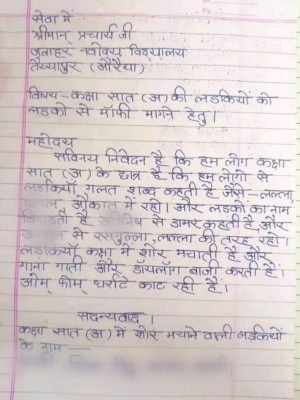 सेवा में
श्रीमान् प्रचार्य जी
जवाहर नवोदय विद्यालय
तैय्यापुर (औरैया)
विषय-कक्षा सात (अ) की लडकियों को
लडको से मॉफी मागने हेतु।
महोदय
सविनय निवेदन है कि हम लोग कक्षा
सात (अ) के छात्र है कि हम लोगो से
लडकियाँ गलत शब्द कहती है जैसे-लल्ला,
औकात में रहो। और लडको का नाम
है से डामर कहती है और
से रसगुल्ला, लल्ला की तरह रहो।
लडकियाँ कक्षा में शोर मचाती है और
गाना गाती और डॉयलाग बाजी करती है।
ओम् फोम् धर्राटे काट रही है।
सदन्यवाद।
कक्षा सात (अ) में शोर मचाने वाली लड़कियों
के नाम —